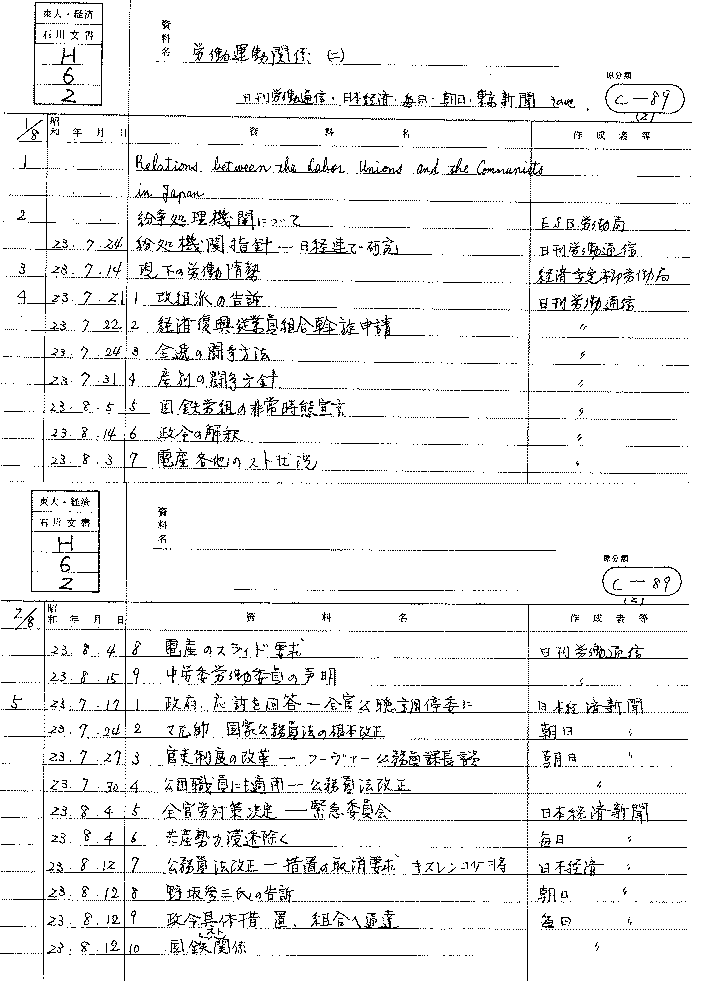 東大・経済
石川文書
H
6
2
資料名 労働運動関係 (二)
日刊労働通信・日本経済・毎日・朝日・東京新聞
原分類
C-89
(2)
1/8 昭和 年 月 日 資料名 作成表等
1 Relations between the Labor Unions and the Communists
in Japan
2 紛争処理機関について ESB労働局
23. 7. 24 紛処機関指針 ― 日経連で研究 日刊労働通信
3 23. 7. 14 現下の労働情勢 経済安定本部労働局
4 23. 7. 21 1 政組派の告訴 日刊労働通信
23. 7. 22 2 経済復興従業員組合幹旋申請 〃
23. 7. 24 3 全逓の闘争方法 〃
23. 7. 31 4 産別の闘争方針 〃
23. 8. 5 5 国鉄労組の非常時態宣言 〃
23. 8. 14 6 政令の解釈 〃
23. 8. 3 7 電産各地のスト状況 〃
東大・経済
石川文書
H
6
2
資料名
原分類
C-89
(2)
2/8 昭和 年 月 日 資料名 作成表等
23. 8. 4 8 電産のスライド要求 日刊労働通信
23. 8. 15 9 中労委労働委員の声明 〃
5 23. 7. 17 1 政府、応訴を回答 ― 全官公聴調停委に 日本経済新聞
23. 7. 24 2 マ元帥 国家公務員法の根本改正 朝日 〃
23. 7. 27 3 官吏制度の改革 ― フーヴァー公務員課長言 朝日 〃
23. 7. 30 4 公団職員にも適用 ― 公務員法改正 〃
23. 8. 4 5 全官労対策決定 ― 緊急委員会 日本経済新聞
23. 8. 4 6 共産勢力浸透除く 毎日 〃
23. 8. 12 7 公務員法改正 ― 措置の取消要求 キスレンコ 日本経済 〃
23. 8. 12 8 野坂参三氏の告訴 朝日 〃
23. 8. 12 9 政令具体措置、組合へ通達 毎日 〃
23. 8. 12 10 国鉄スト関係 〃